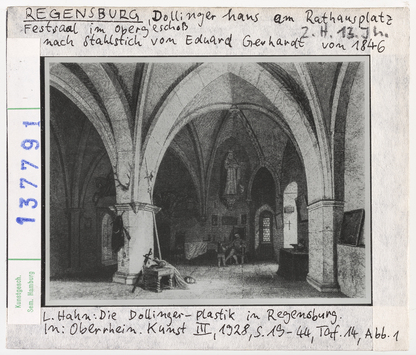 REGENSBURG, Dollingerhaus am Rathausplatz
Festsaal im Obergeschoß 2. H. 13. Jh.
nach Stahlstich von Eduard Gerhardt von 1846
137791
Kunstgesch.
Sem. Hamburg
L. Hahn: Die Dollinger-plastik in Regensburg.
In: Oberrhein. Kunst III, 1928, S. 19-44, Taf. 14, Abb. 1